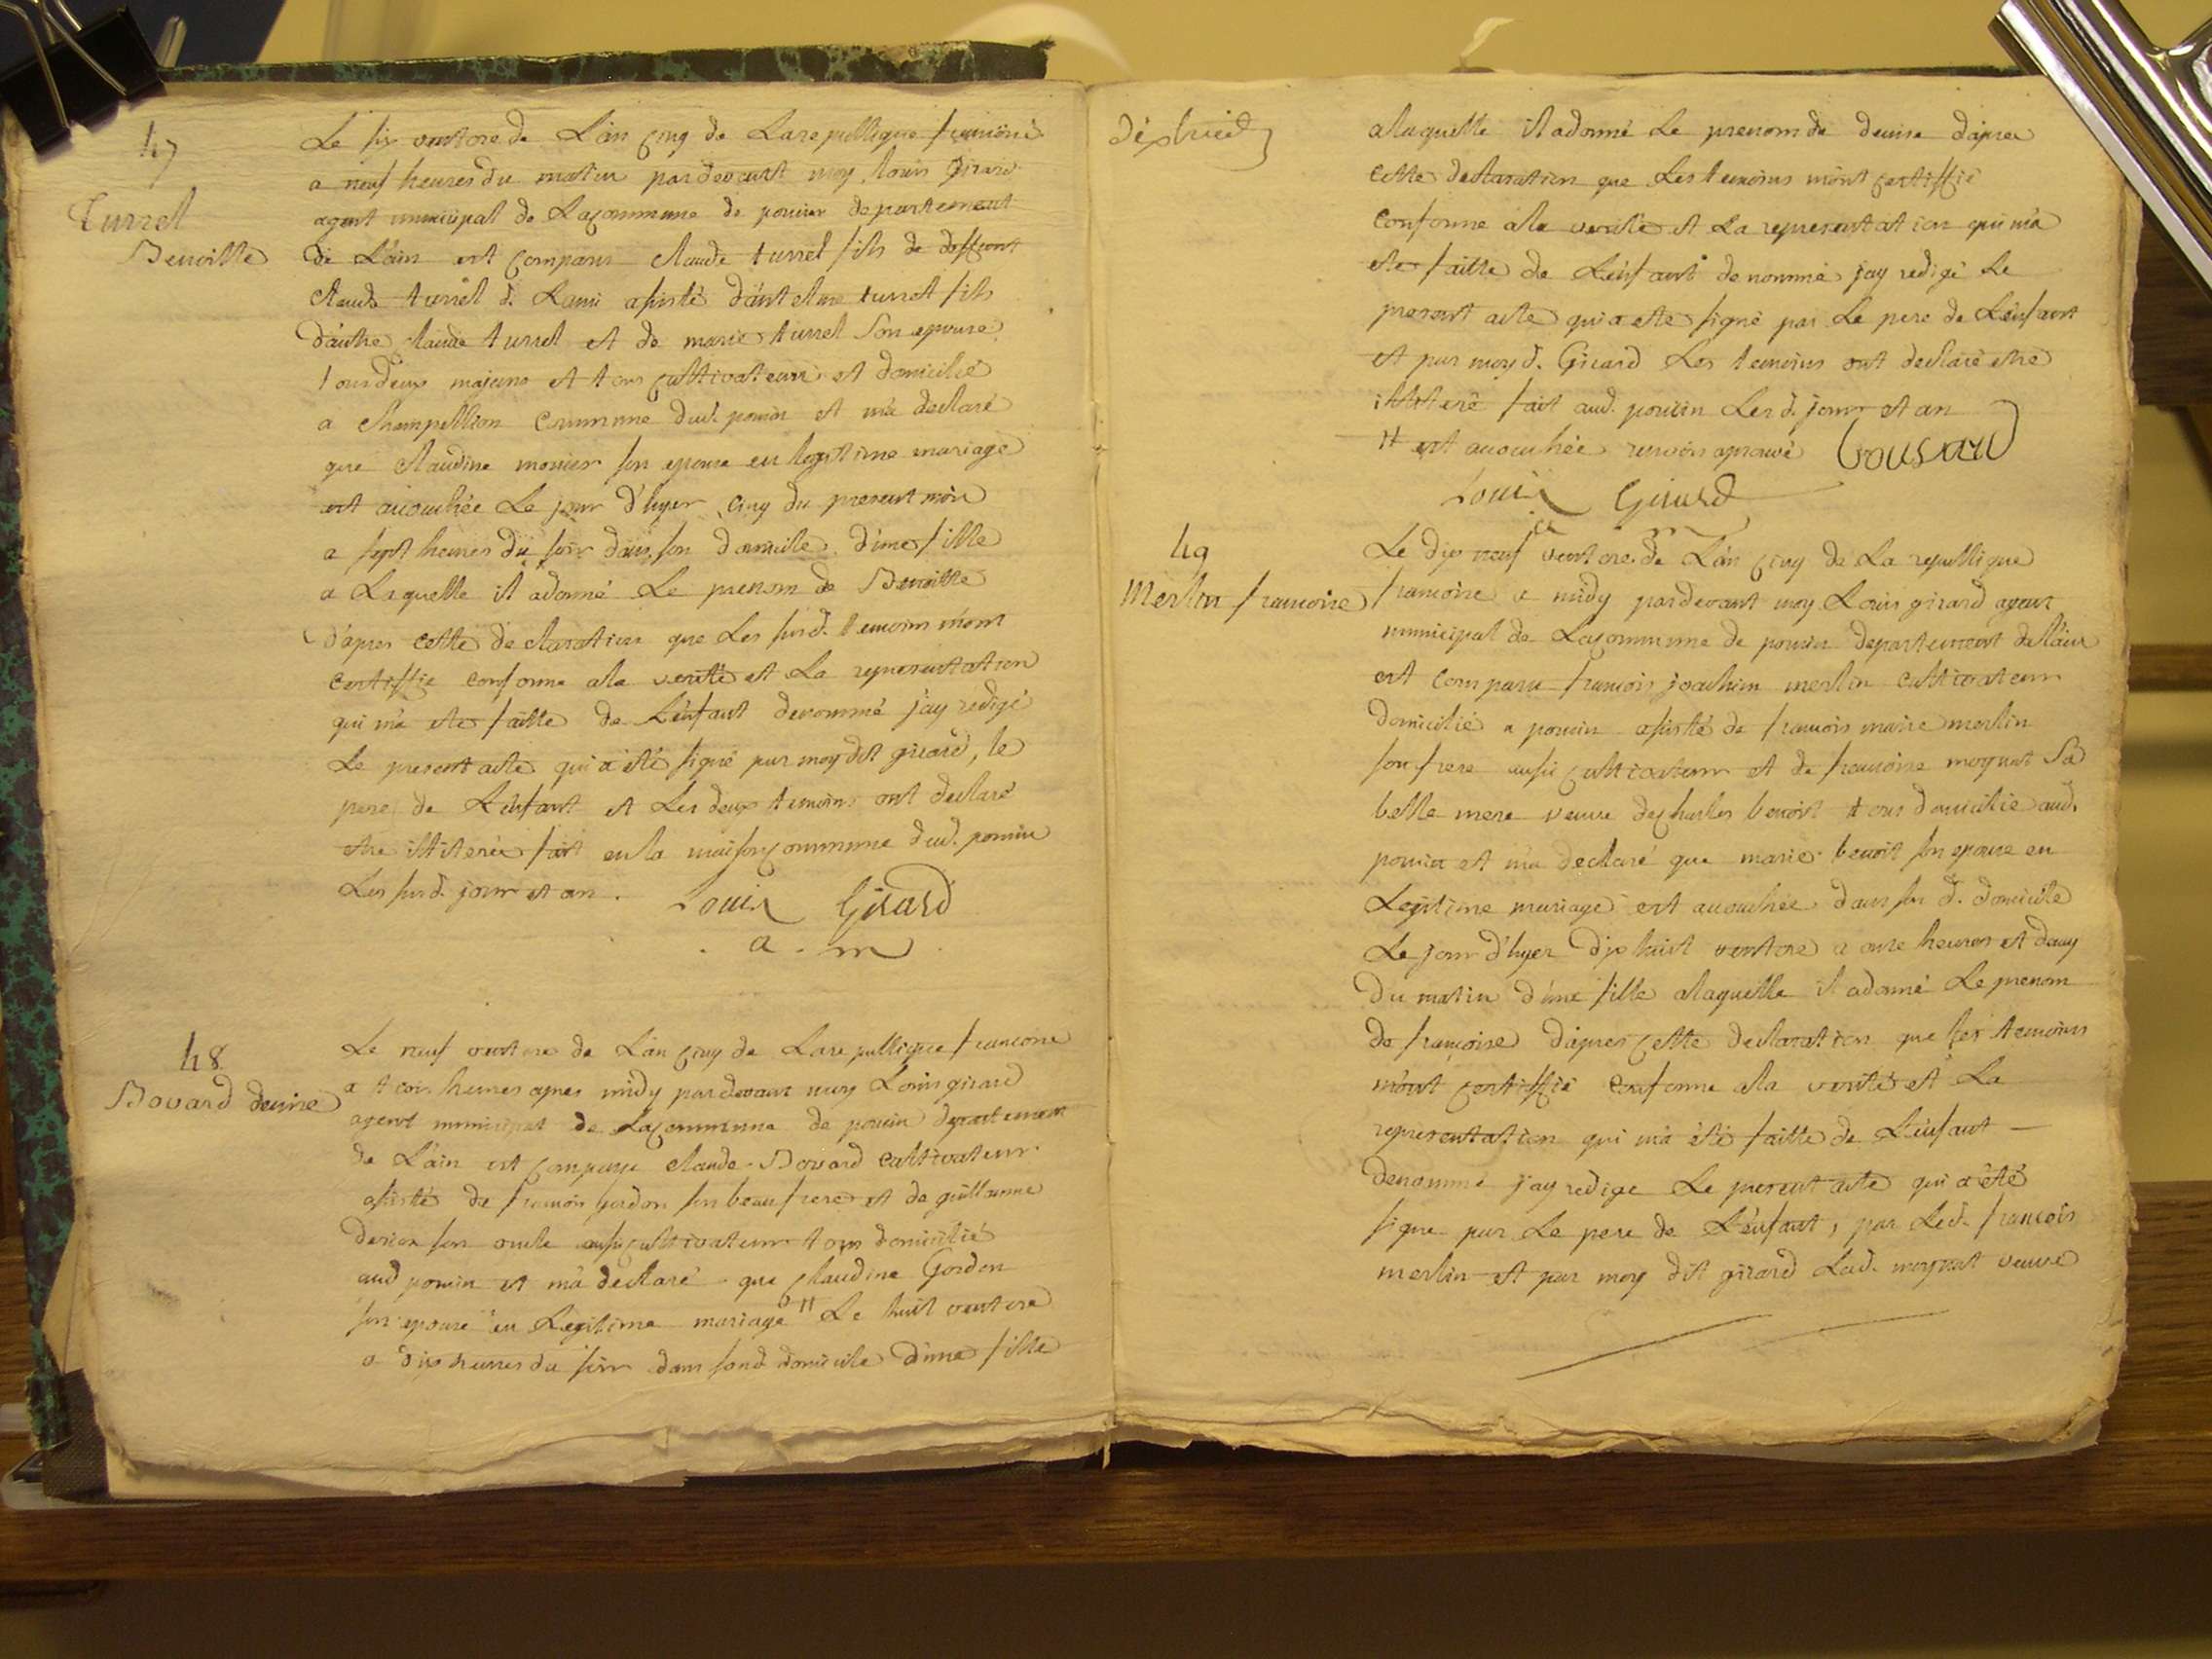 47
Turrel
Benoitte
Le six ventose de L'an cinq de La republique francoise
a neuf heures du matin pardevant moy Louis Girard
agent municipal de La commune de poncin departement
de L'ain est comparu Claude turrel fils de deffunt
Claude turrel d. Lami assisté d'antelme turrel fils
d'autre claude turrel et de marie turrel son epouse
tous deux majeurs et tous cultivateurs et domicilié
a Champeillion Commune dud. poncin et m'a declaré
que claudine monier son epouse en legitime mariage
est accouchée Le jour d'hyer cinq du present mois
a sept heures du soir dans son domicile d'une fille
a Laquelle il a donné Le prenom de Benoitte
d'apres cette declaration que Les susd. temoins m'ont
certiffie conforme a la verité et La representation
qui m'a ete faitte de L'enfant denommé j'ay redigé
Le present acte qui a été signé par moy dit girard, le
pere de L'enfant et Les deux temoins ont declaré
etre illiterée fait en la maison commune dud. poncin
Les susd. jour et an. Louis Girard
a. m
48
Bovard denise
Le neuf ventose de L'an cinq de La republique francoise
a trois heures apres midy pardevant moy Louis girard
agent municipal de La commune de poncin departement
de L'ain est comparu claude Bovard cultivateur
assisté de francois gordon son beau frere et de guillaume
son oncle aussi cultivateur tous domicilié
aud poncin et m'a declaré que claudine Gordon
son epouse en Legitime mariage # Le huit ventose
a dix heures du soir dans sond domicile d'une fille
a laquelle il a donné Le prenom de denise d'apres
cette declaration que Les temoins m'ont certiffié
conforme a la verité et La representation qui m'a
ete faitte de L'enfant denommé j'ay redigé Le
present acte qui a ete signé par Le pere de L'enfant
et par moy d. Girard Les temoins ont declaré etre
illiteré fait aud. poncin Les d. jour et an
# est accouchée renvoi aprouvé
Louis Girard
a m
49
Merlin francoise
Le dix neuf ventose de L'an cinq de La republique
francoise a midy pardevant moy Louis girard agent
municipal de La commune de poncin departement de L'ain
est comparu francois joachim merlin cultivateur
domicilié a poncin assisté de francois marie merlin
son frere aussi cultivateur et de francoise moynat Sa
belle mere veuve de charles benoit tous domicilie aud.
poncin et m'a declaré que marie benoit son epouse en
Legitime mariage est accouchée dans son d. domicile
Le jour d'hyer dix huit ventose a onze heures et demy
du matin d'une fille a laquelle il a donné Le prenom
de francoise d'apres cette declaration que les temoins
m'ont certiffié conforme a la verité et La
representation qui m'a été faitte de L'enfant
denommé j'ay redige Le present acte qui a été
signe par Le pere de L'enfant, par Led. francois
merlin et par moy dit girard Lad. moynat veuve